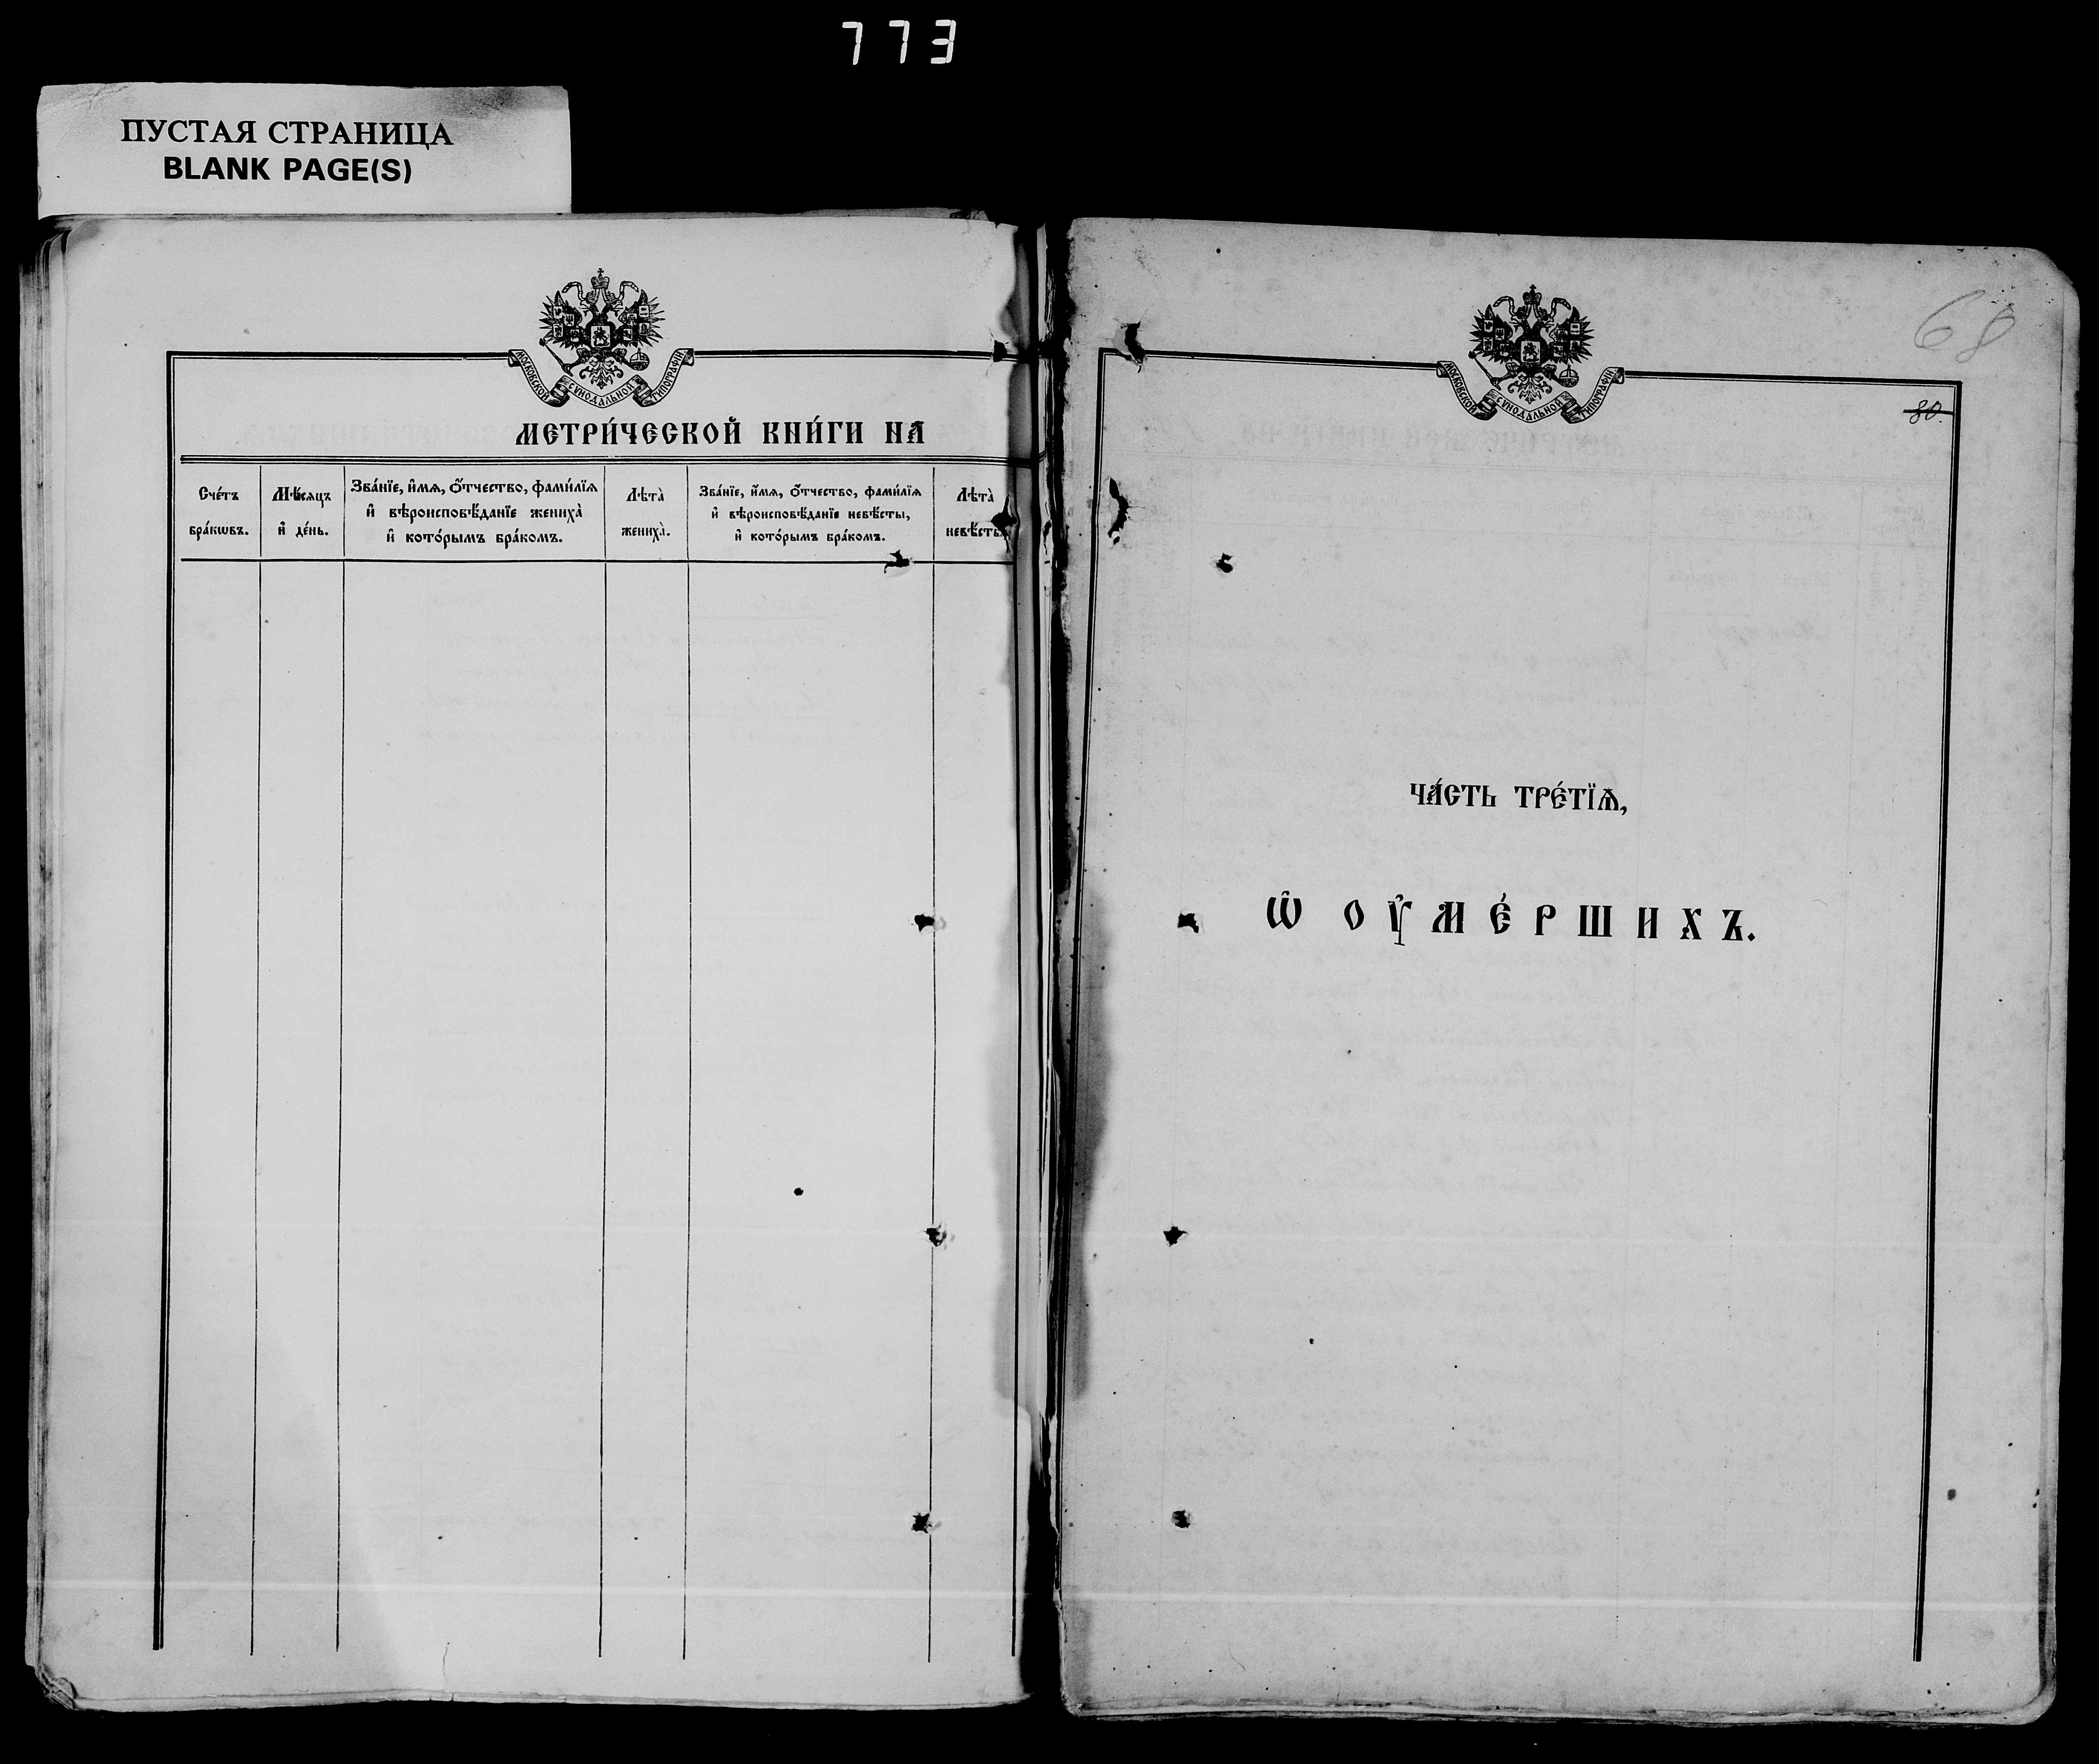 773
ПУСТАЯ СТРАНИЦА
BLANK PAGE(S)
МОСКОВСКОЙ СѴНОДАЛЬНОЙ ТИПОГРАФІИ
МЕТРИ́ЧЕСКОЙ КНИ́ГИ НА
Сче́тъ бра́кѡвъ.
Мѣ́сяцъ и҆ де́нь.
Зва́нїе, и҆́мѧ, ѻ҆́тчество, фами́лїѧ
и҆ вѣроисповѣ́данїе жениха̀
и҆ кото́рымъ бра́комъ.
Лѣта̀ жениха̀.
Зва́нїе, и҆́мѧ, ѻ҆́тчество, фами́лїѧ
и҆ вѣроисповѣ́данїе невѣ́сты,
и҆ кото́рымъ бра́комъ.
Лѣта̀ невѣ́сты.
68
МОСКОВСКОЙ СѴНОДАЛЬНОЙ ТИПОГРАФІИ
80.
ЧА́СТЬ ТРЕ́ТЇѦ,
Ѡ҆ ОУ҆МЕ́РШИХЪ.